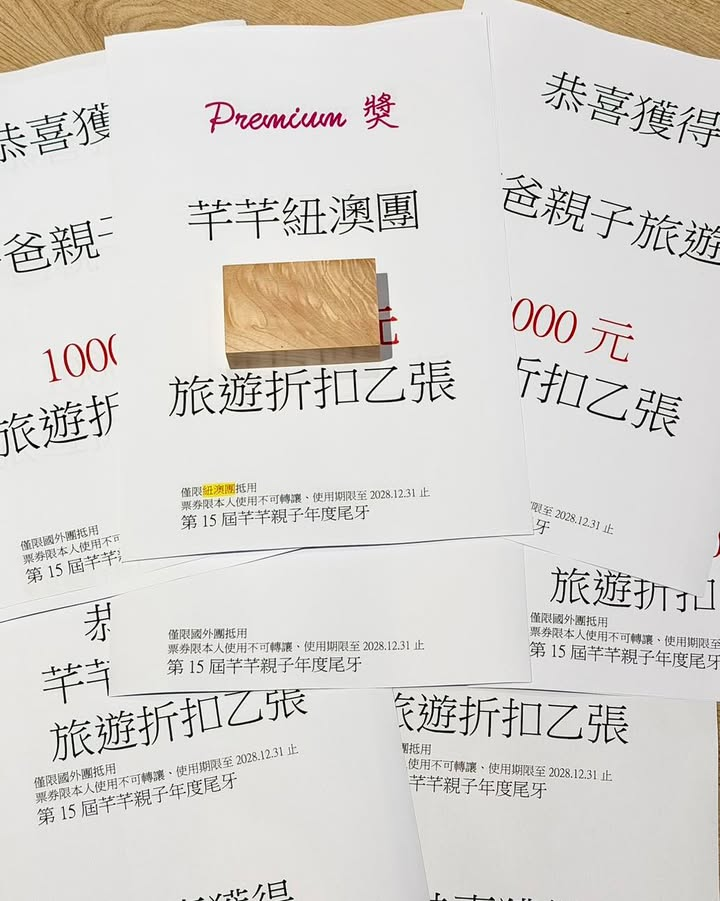 Premium 獎
芊芊紐澳團
元
旅遊折扣乙張
僅限紐澳團抵用
票券限本人使用不可轉讓、使用期限至 2028.12.31 止
第 15 屆芊芊親子年度尾牙
恭喜獲
爸親子
1000
旅遊折
僅限國外團抵用
票券限本人使用不可
第 15 屆芊芊
恭喜獲得
爸親子旅遊
000 元
折扣乙張
限至 2028.12.31 止
牙
僅限國外團抵用
票券限本人使用不可轉讓、使用期限至 2028.12.31 止
第 15 屆芊芊親子年度尾牙
旅遊折扣
僅限國外團抵用
票券限本人使用不可轉讓、使用期限至 2028.12.31
第 15 屆芊芊親子年度尾牙
恭
芊芊
旅遊折扣乙張
僅限國外團抵用
票券限本人使用不可轉讓、使用期限至 2028.12.31 止
第 15 屆芊芊親子年度尾牙
旅遊折扣乙張
團抵用
使用不可轉讓、使用期限至 2028.12.31 止
芊芊親子年度尾牙
獲得